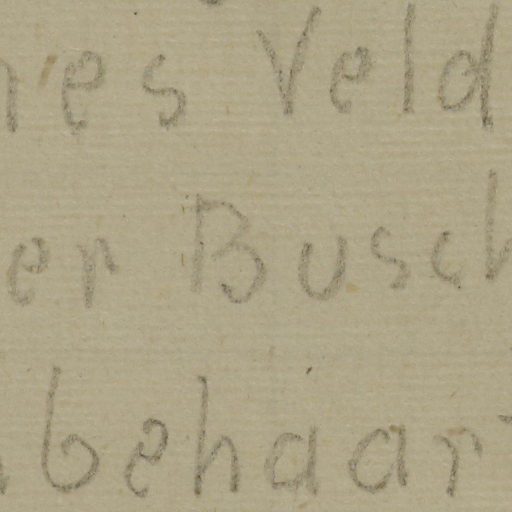 nes Veld
er Busch
behaar